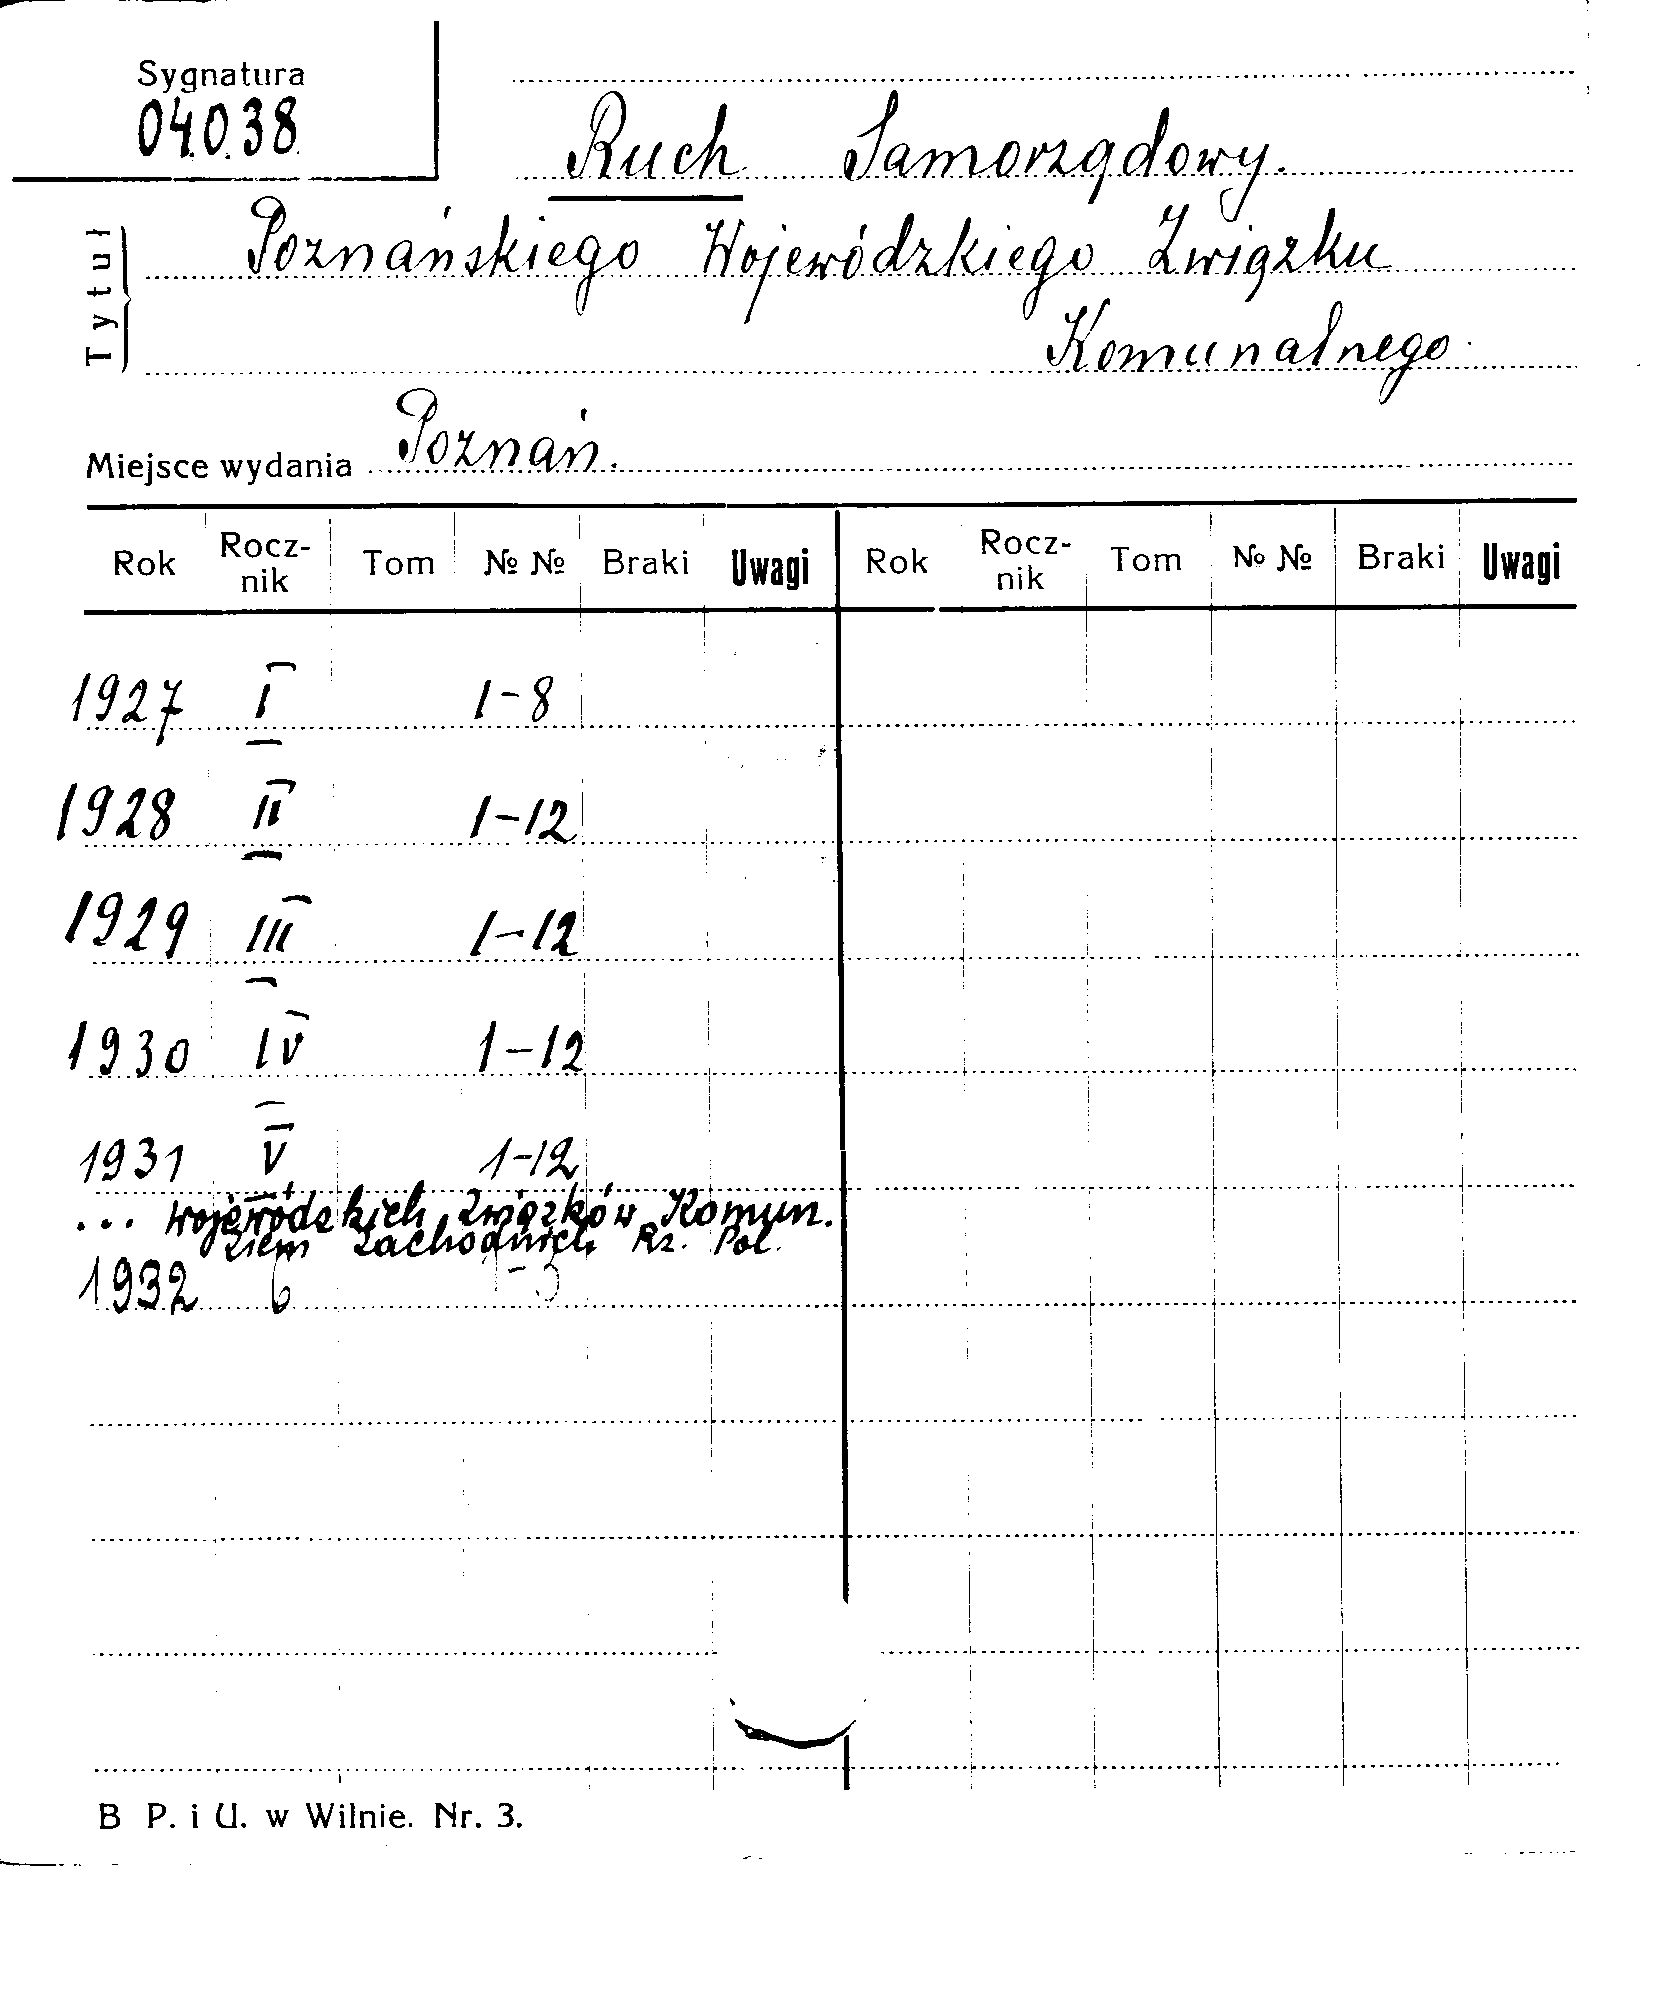 Sygnatura
04.0.38
Ruch Samorządowy.
Tytuł
Poznańskiego Wojewódzkiego Związku
Komunalnego.
Miejsce wydania Poznań.
Rok Rocz-nik Tom № № Braki Uwagi Rok Rocz-nik Tom № № Braki Uwagi
1927 I 1-8
1928 II 1-12
1929 III 1-12
1930 IV 1-12
1931 V 1-12
... wojewódzkich Związków Komun.
Ziem Zachodnich Rz. Pol.
1932 6 1-3
B P. i U. w Wilnie. Nr. 3.